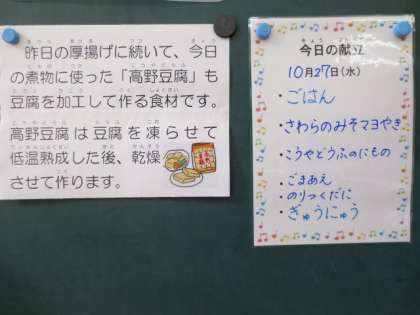 昨日の厚揚げに続いて、今日
の煮物に使った「高野豆腐」も
豆腐を加工して作る食材です。
高野豆腐は豆腐を凍らせて
低温熟成した後、乾燥
させて作ります。
今日の献立
10月27日(水)
・ごはん
・さわらのみそマヨやき
・こうやどうふのにもの
・ごまあえ
・のりつくだに
・ぎゅうにゅう